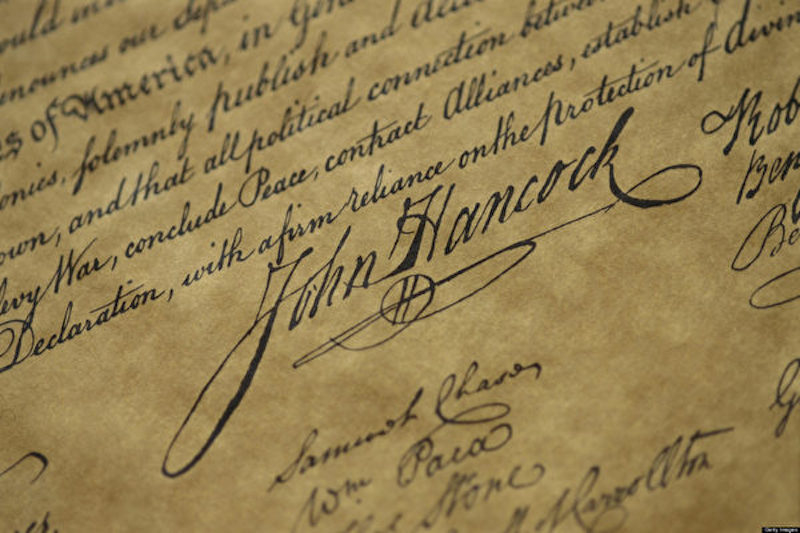 ould in
nounces our
s of America, in Gen
onies, solemnly publish and
own, and that all political connection betwee
levy War, conclude Peace, contract Alliances, establish
Declaration, with a firm reliance on the protection of divin
John Hancock
H
Rob
Ben
Be
Samuel Chase
Wm Paca
Stone
Carrollton
G
Getty Images